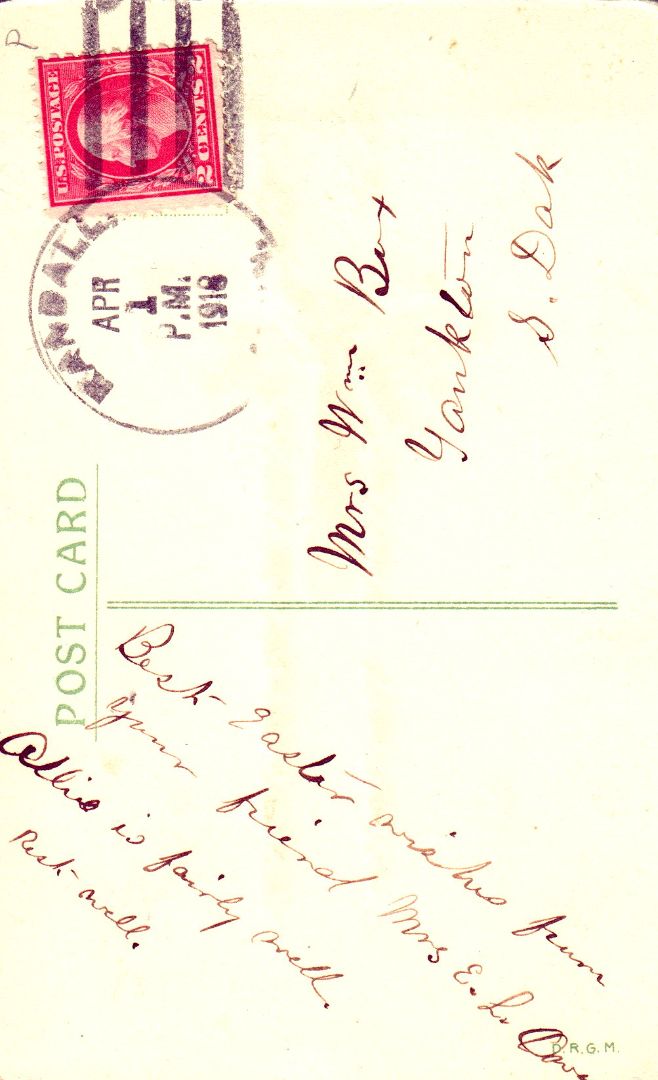 P
U.S. POSTAGE
2 CENTS 2
RANDALL
APR
1
P.M.
1918
POST CARD
Mrs Wm Box
Yankton
S. Dak
Best Easter wishes from
your friend Mrs E. L.
Allie is fairly well.
Rest well.
D.R.G.M.